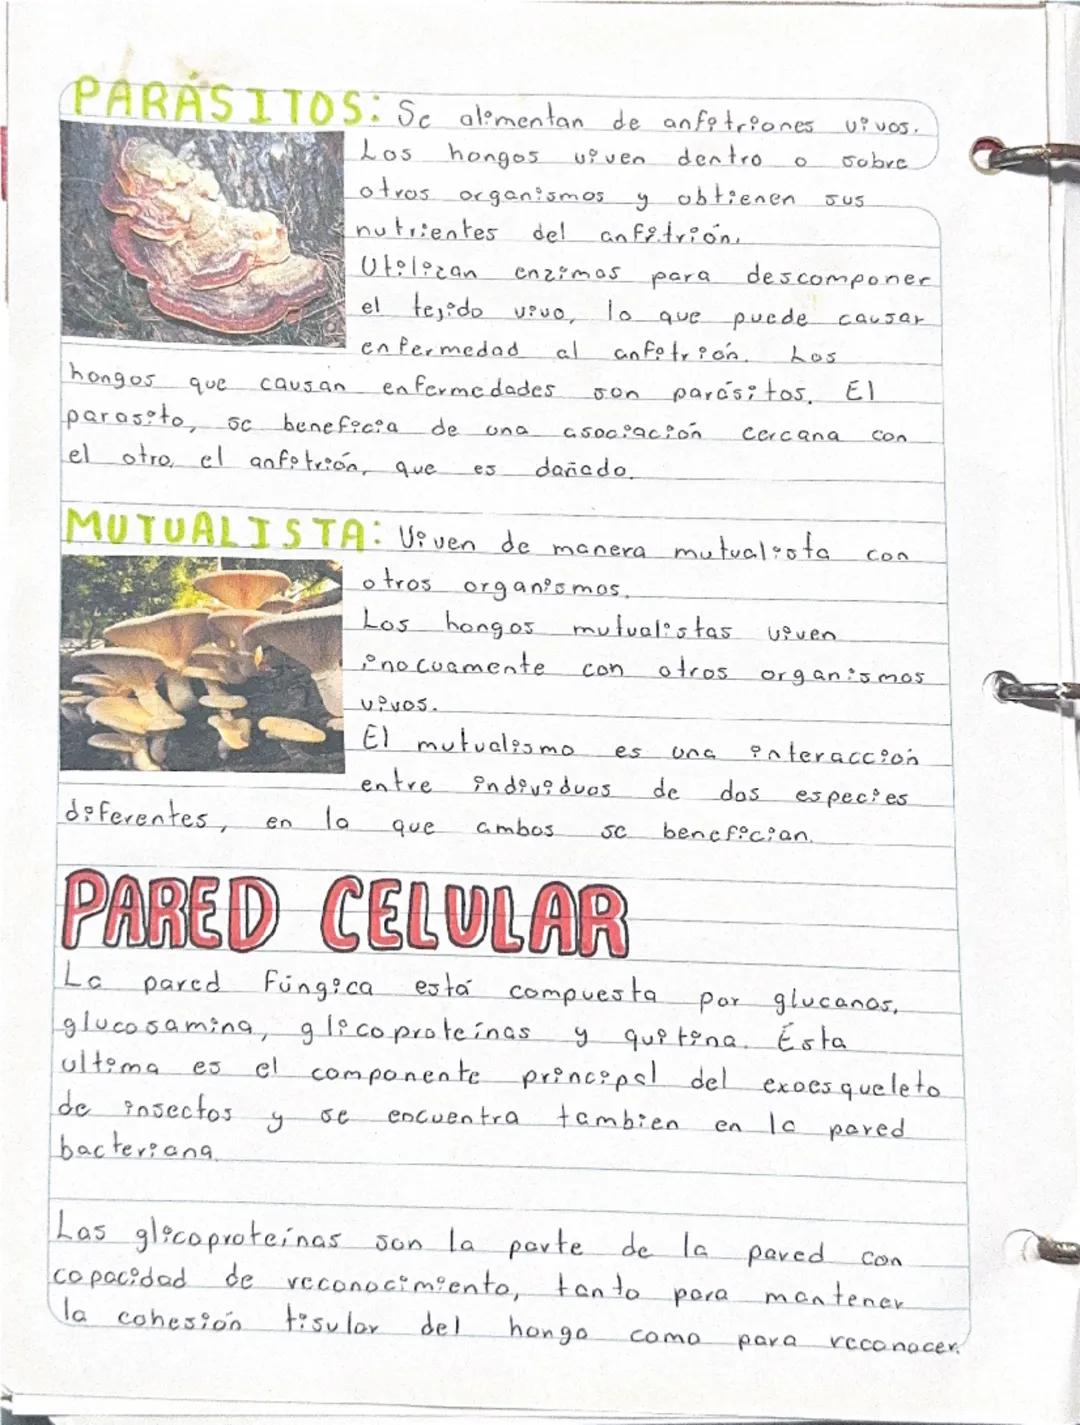 PARÁSITOS: Se alimentan de anfitriones vivos.
Los hongos viven dentro o sobre
otros organismos y obtienen sus
nutrientes del anfitrión.
Utilizan enzimas para descomponer
el tejido vivo, lo que puede causar
enfermedad al anfitrión. Los
hongos que causan enfermedades son parásitos. El
parasito, se beneficia de una asociación cercana con
el otro, el anfitrión, que es dañado.
MUTUALISTA: Viven de manera mutualista con
otros organismos.
Los hongos mutualistas viven
inocuamente con otros organismos
vivos.
El mutualismo es una interacción
entre individuos de dos especies
diferentes, en la que ambos se benefician.
PARED CELULAR
La pared fúngica está compuesta por glucanos,
glucosamina, glicoproteínas y quitina. Ésta
ultima es el componente principal del exoesqueleto
de insectos y se encuentra tambien en la pared
bacteriana.
Las glicoproteínas son la parte de la pared con
capacidad de reconocimiento, tanto para mantener
la cohesión tisular del hongo como para reconocer.